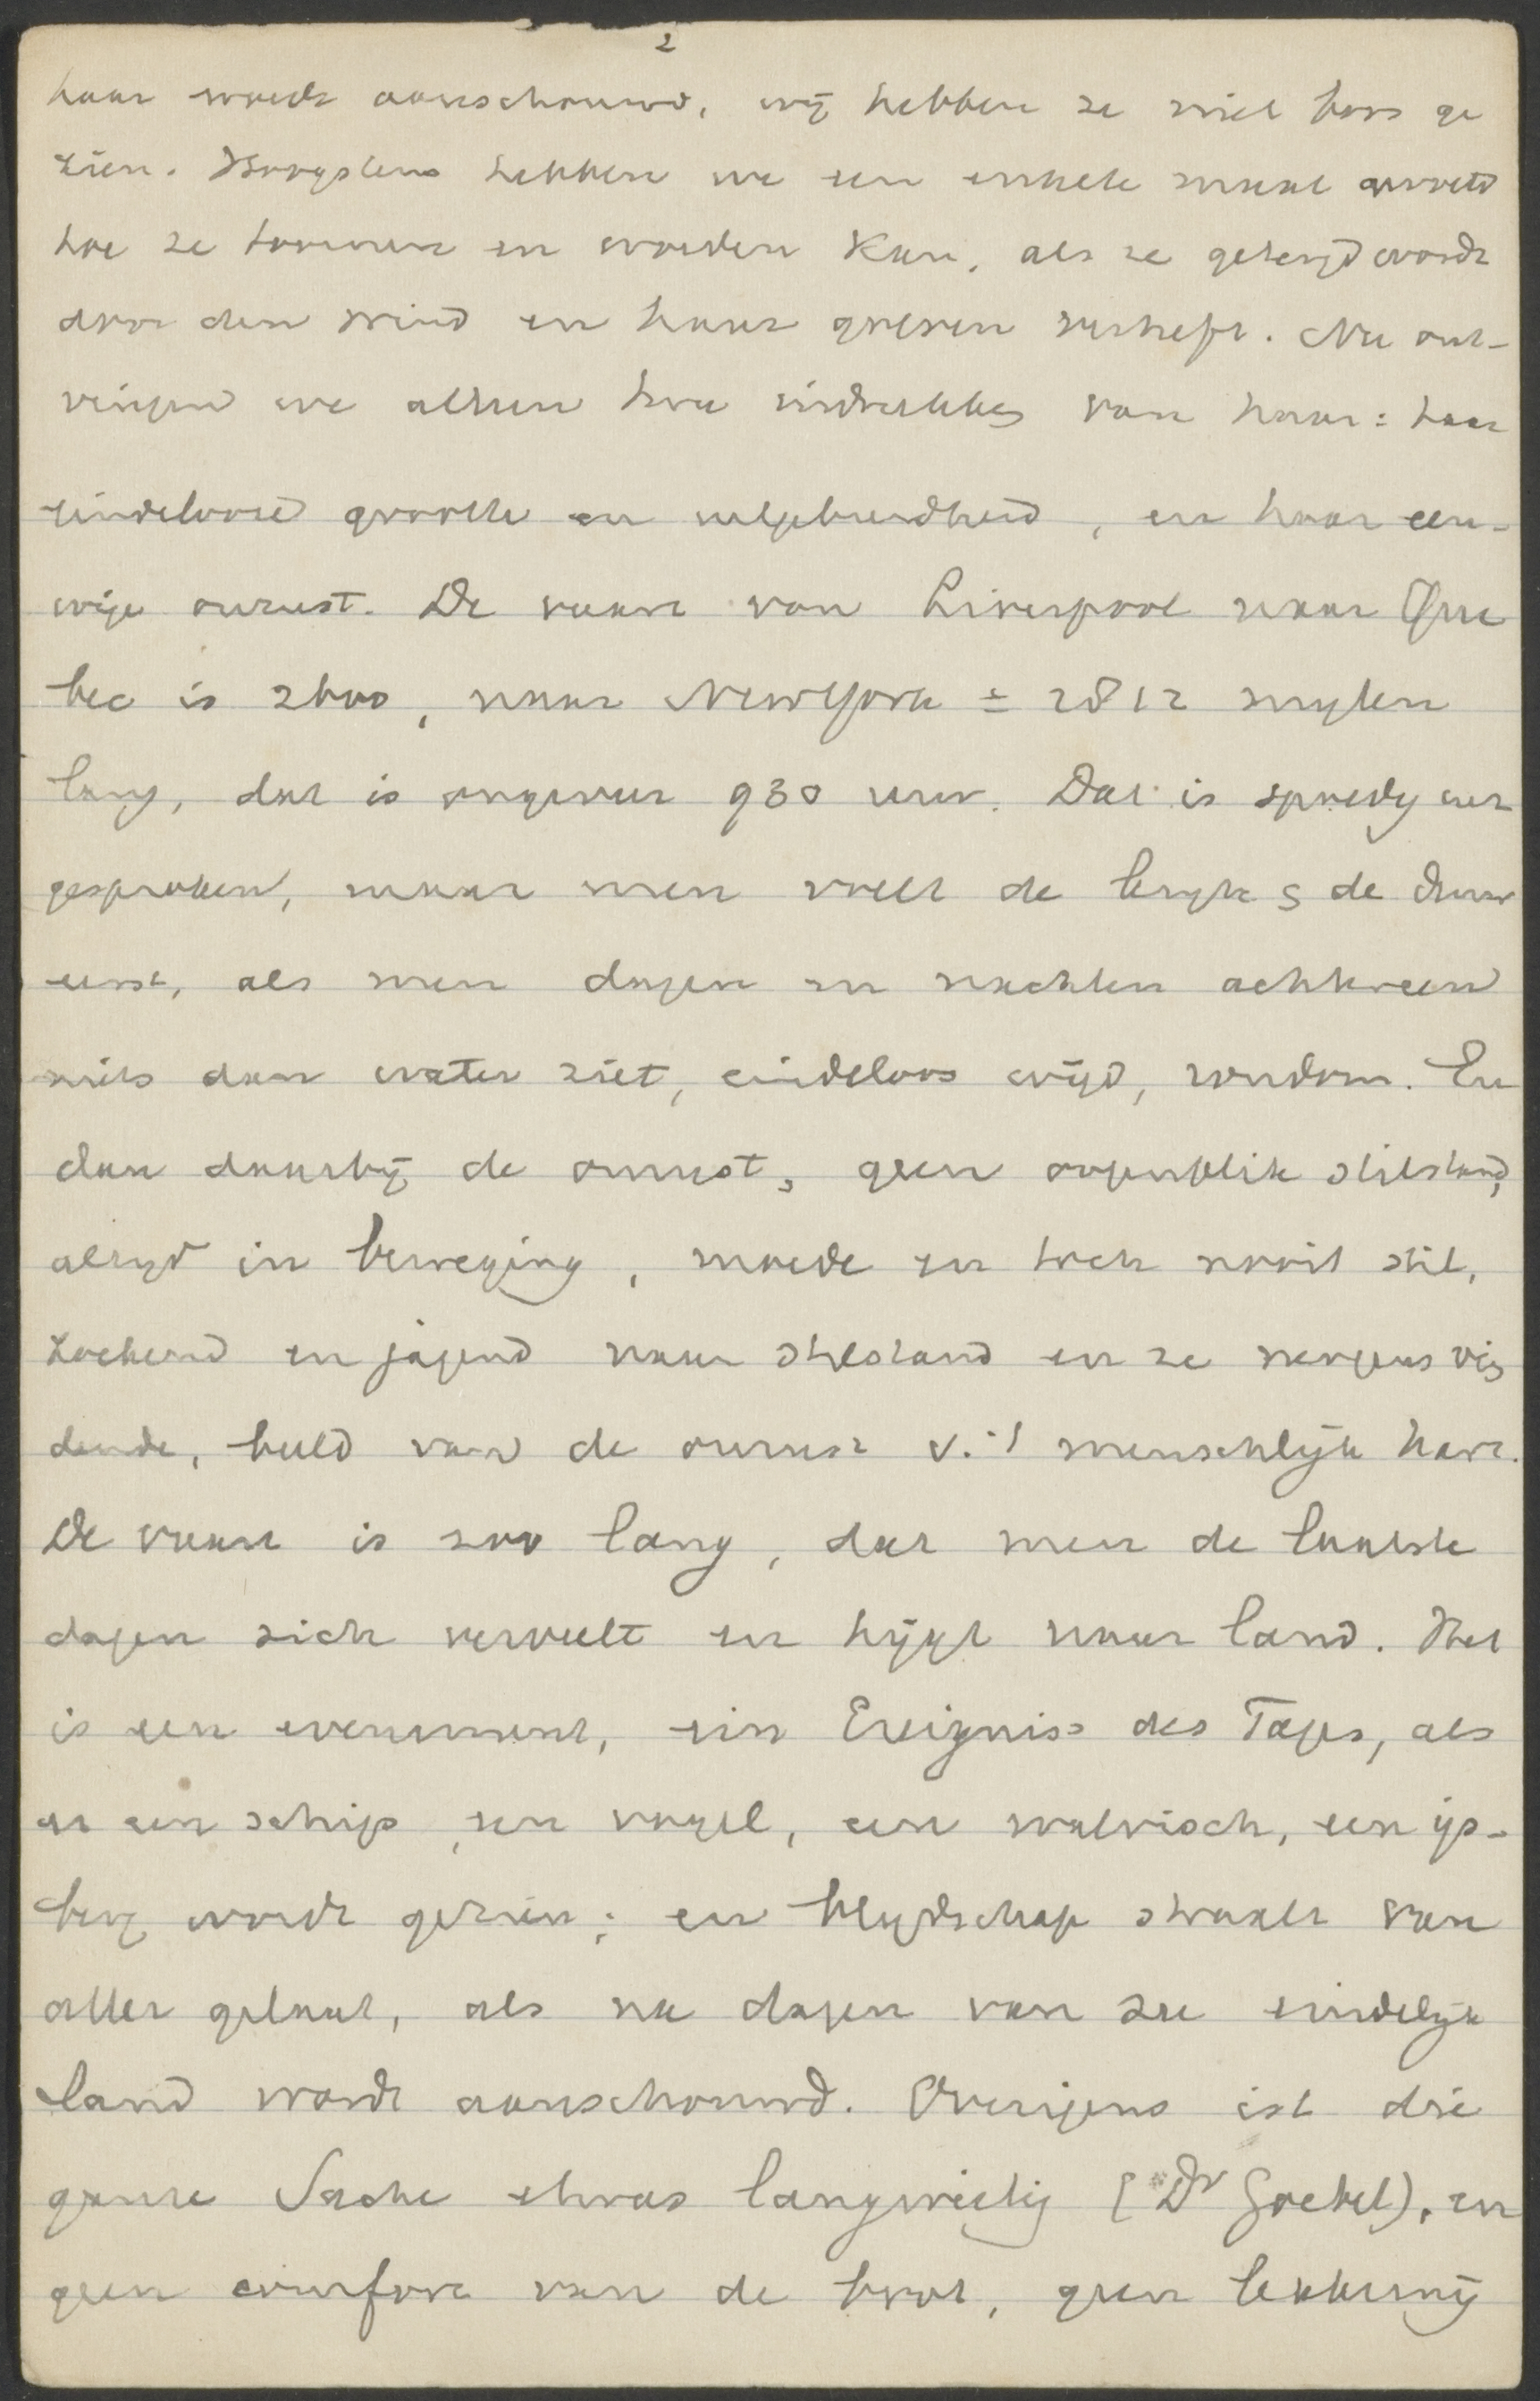 2
haar woede aanschouwd, wij hebben ze niet boos ge
zien. Hoogstens hebben we een enkele maal gemerkt
hoe ze toornen en woeden kan, als ze getergd wordt
door den wind en haar golven verheft. Nu ont-
vingen we alleen twee indrukken van haar: haar
eindelooze grootte en uitgebreidheid, en haar eeu-
wige onrust. De vaart van Liverpool naar Que
bec is 2600, naar NewYork ± 2812 mylen
lang, dat is ongeveer 930 uur. Dat is spoedig uit
gesproken, maar men voelt de lengte & de duur
eerst, als men dagen en nachten achtereen
niets dan water ziet, eindeloos wijd, rondom. En
dan daarbij de onrust, geen oogenblik stilstand,
altyd in beweging, moede en toch nooit stil,
zoekend en jagend naar stilstand en ze nergens vin
dende, beeld van de onrust v. 't menschlijk hart.
De vaart is zoo lang, dat men de laatste
dagen zich verveelt en hijgt naar land. Het
is een evenement, ein Ereigniss des Tages, als
er een schip, een vogel, een walvisch, een ijs-
berg wordt gezien; en blydschap straalt van
aller gelaat, als na dagen van zee eindelijk
land wordt aanschouwd. Overigens ist die
ganze Sache etwas langweilig (Dr Goebel), en
geen comfort van de boot, geen lekkernij